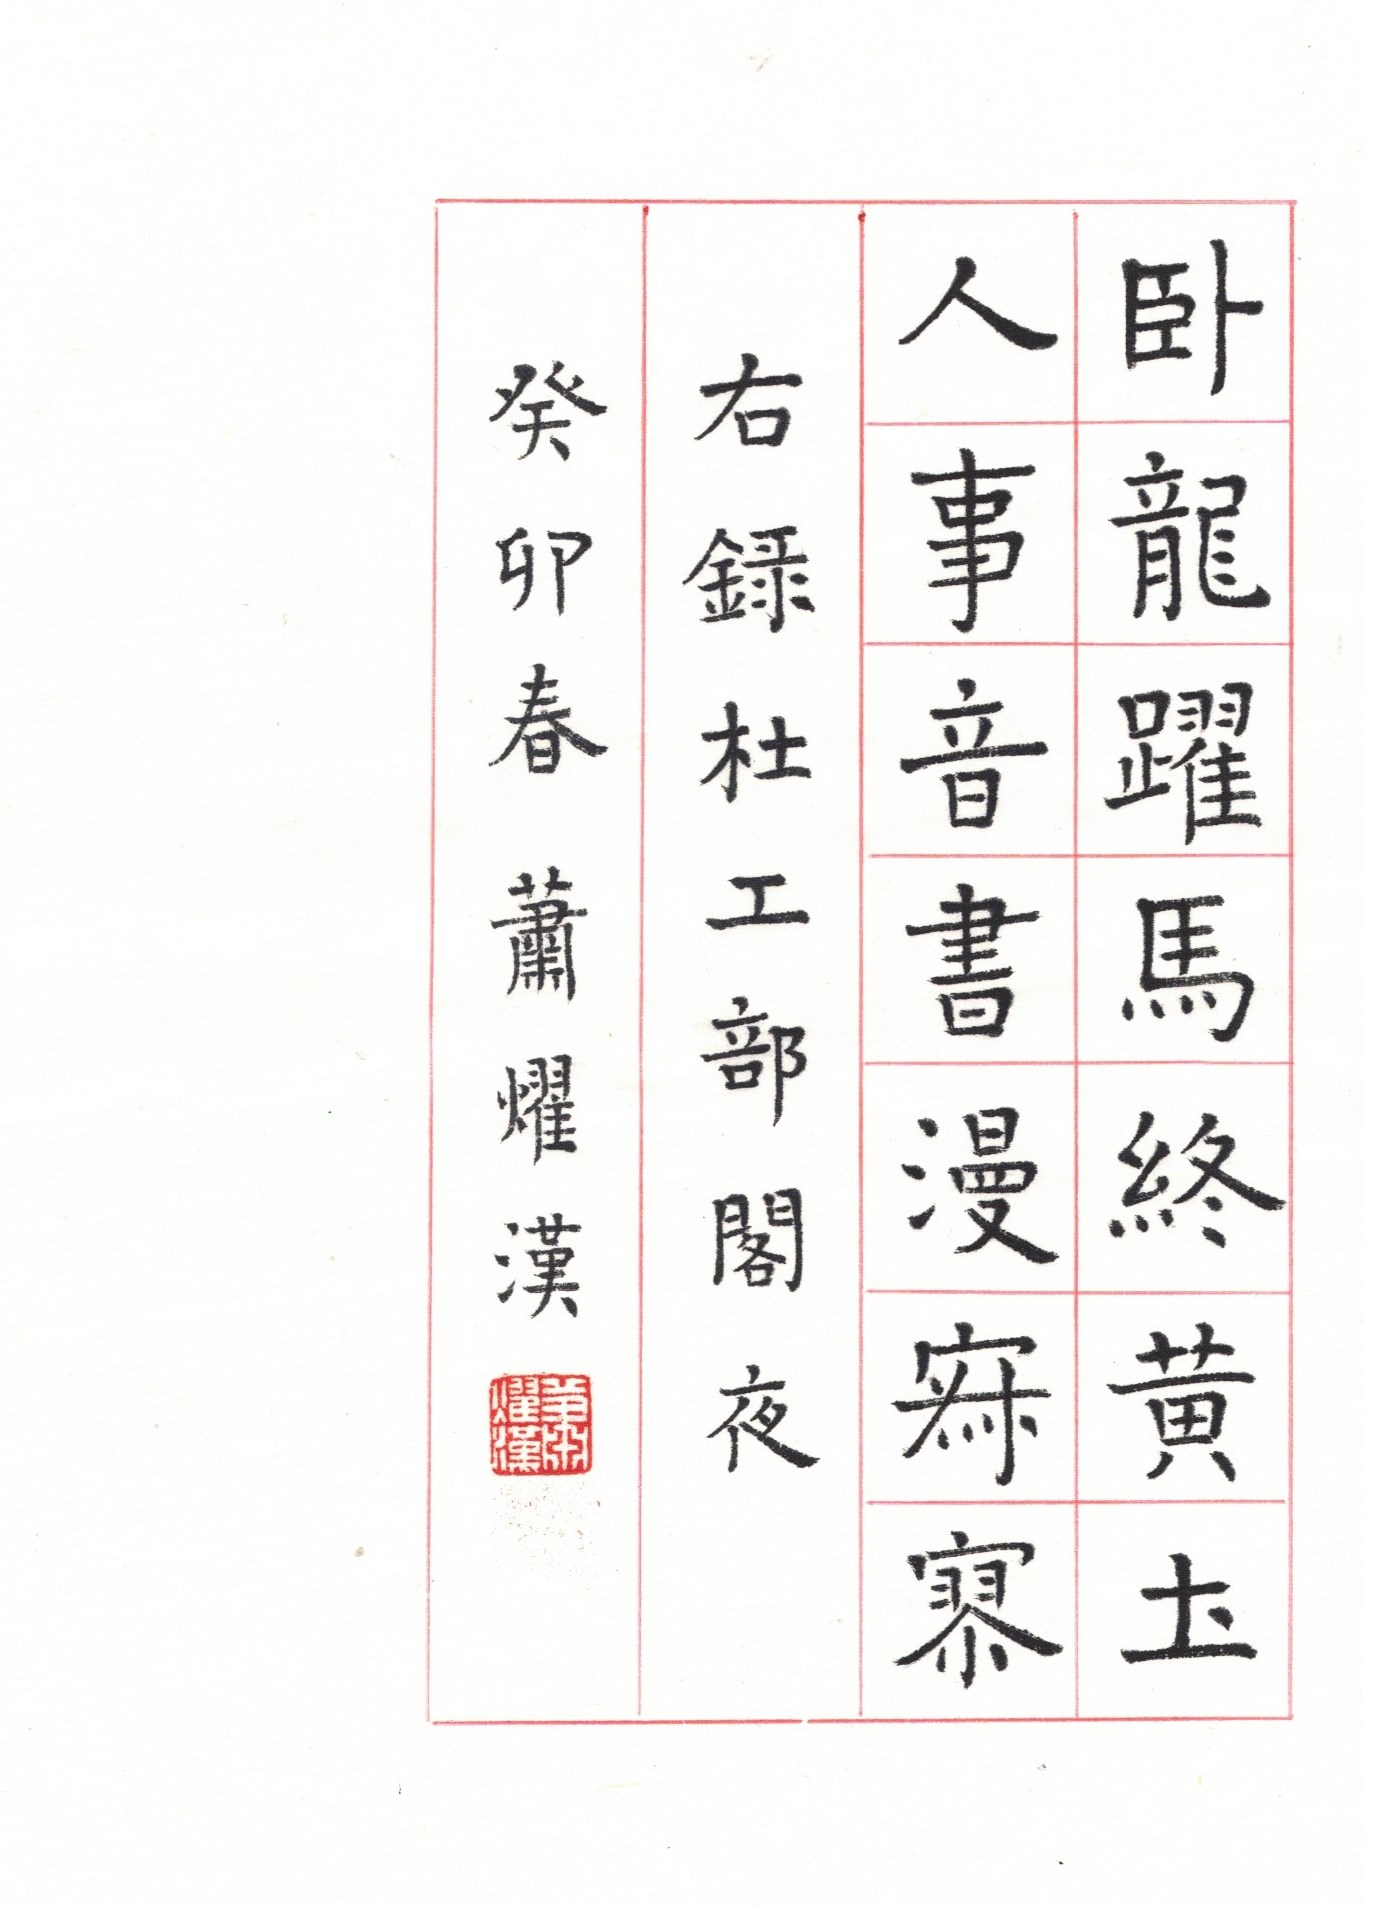 卧龍躍馬終黃土
人事音書漫寂寥
右錄杜工部閣夜
癸卯春 蕭耀漢
蕭耀漢